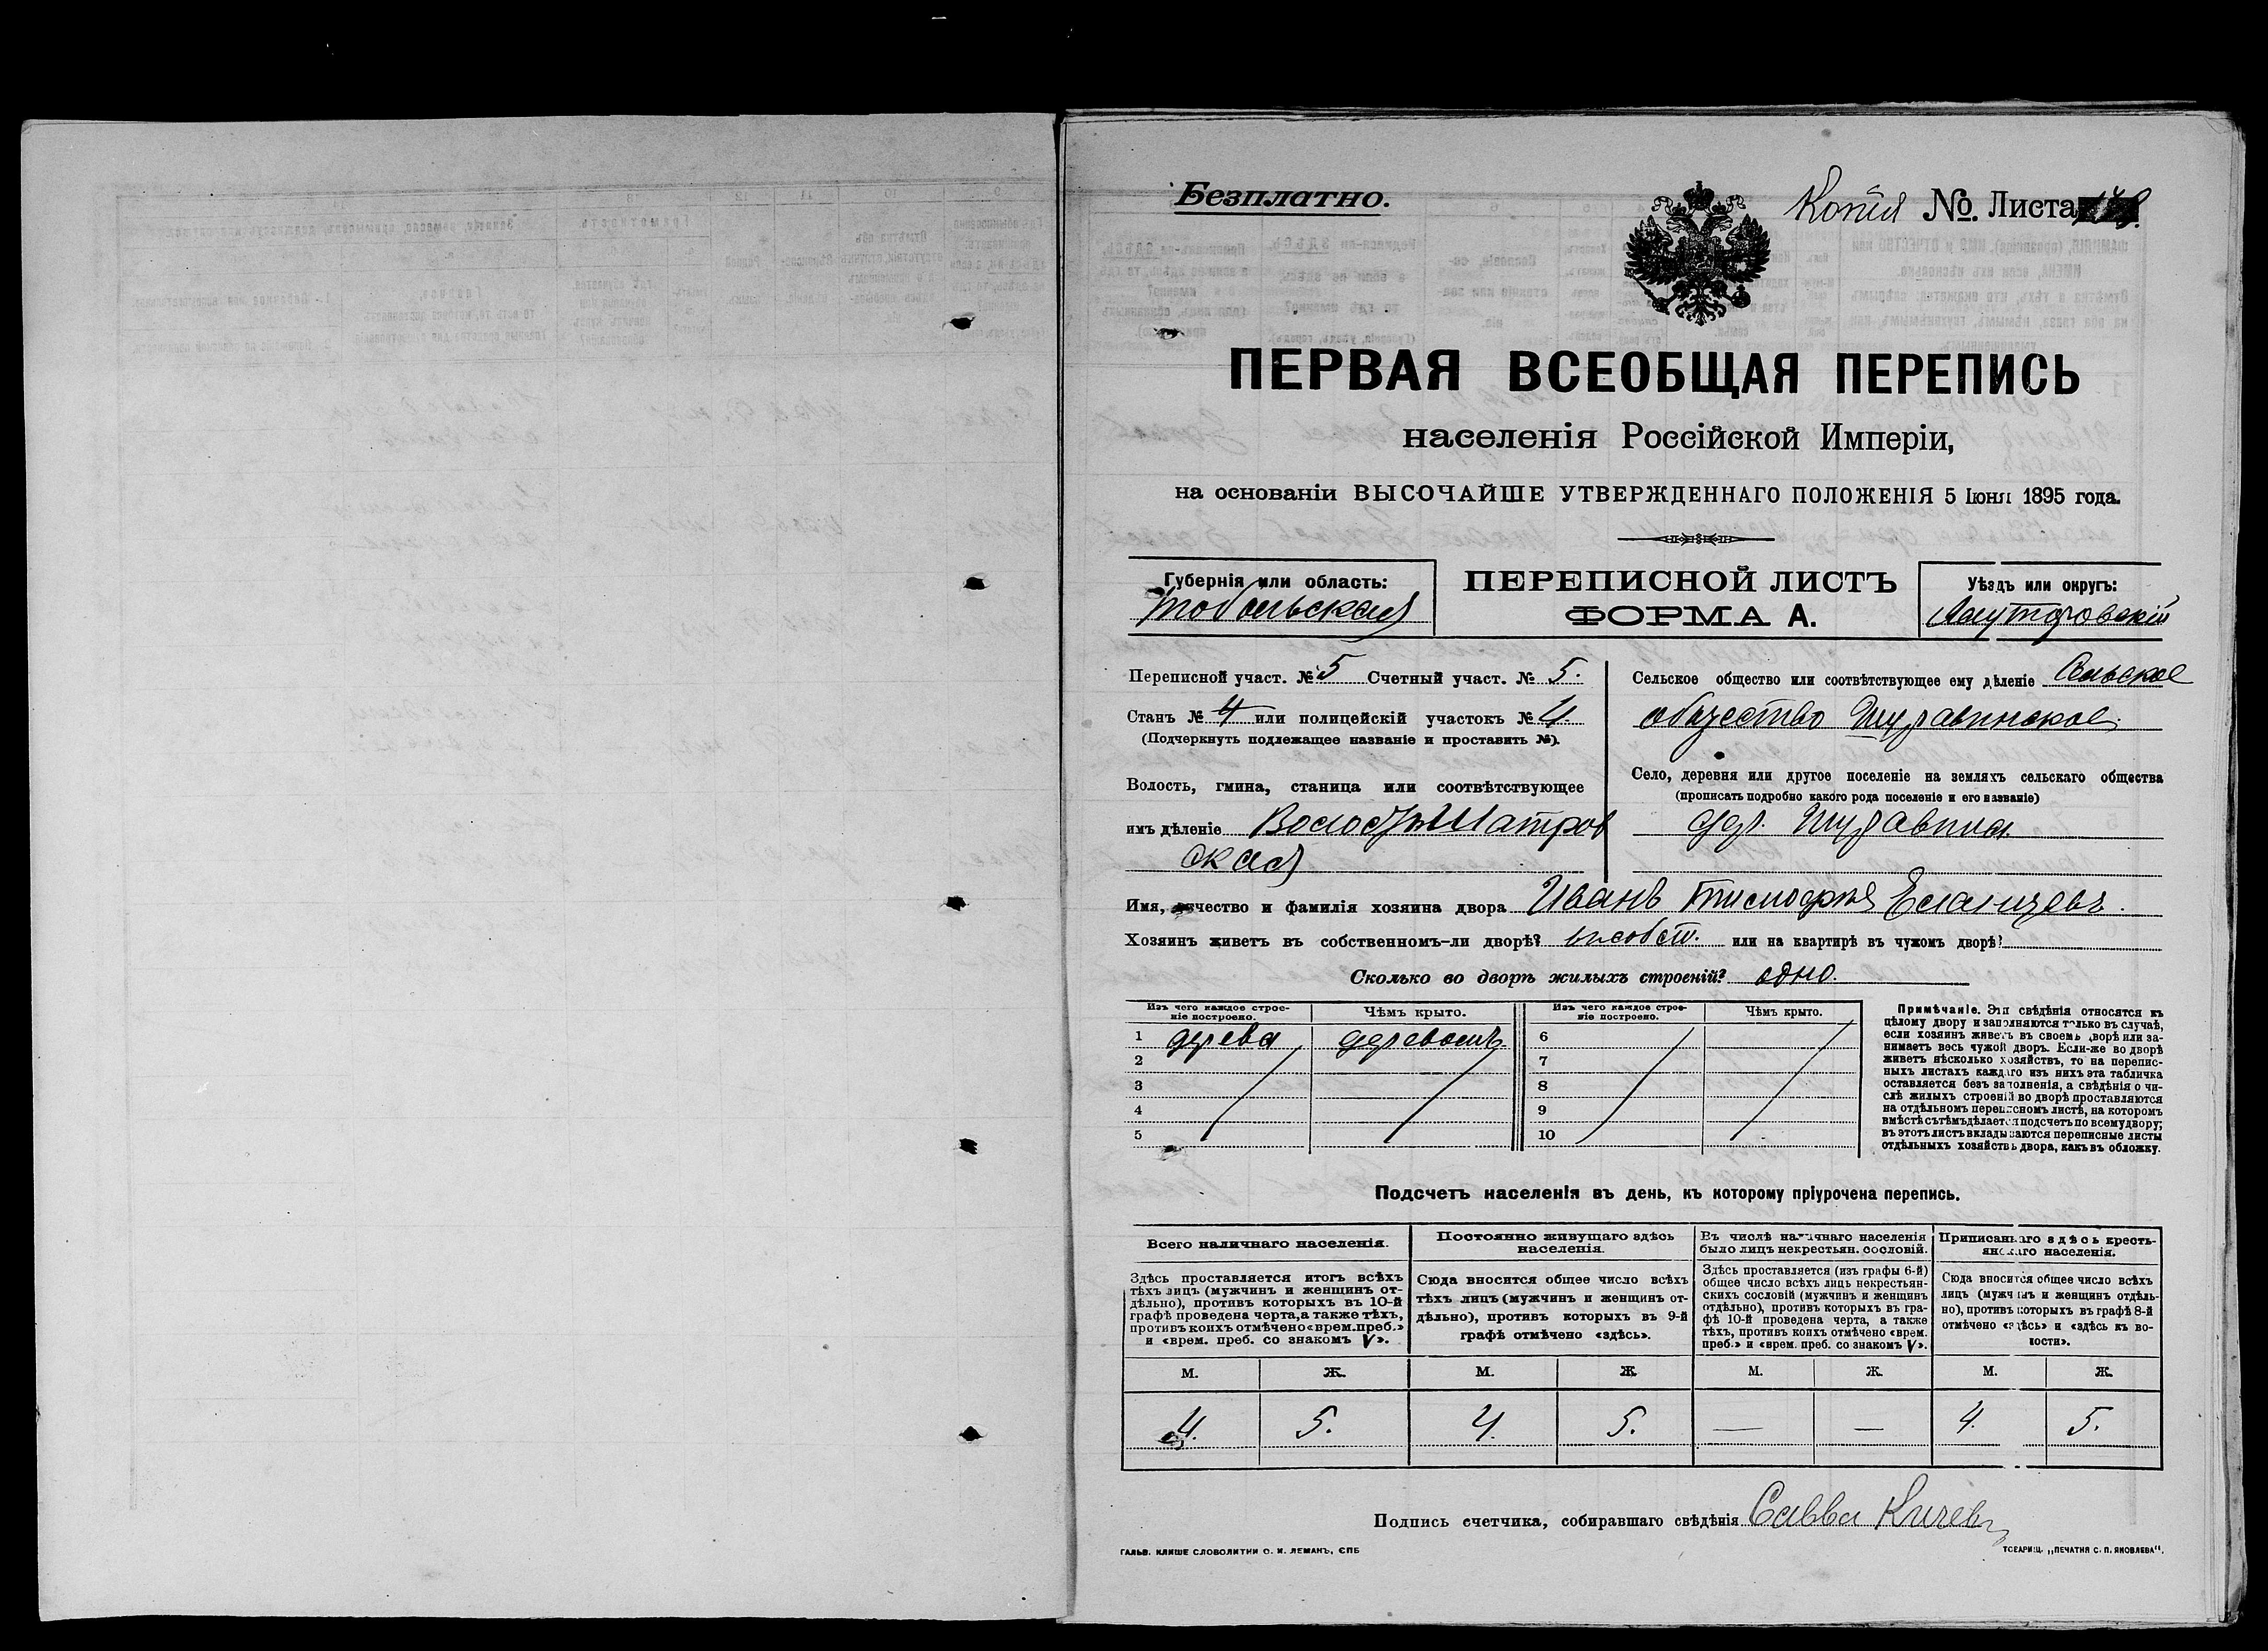 Безплатно.
Копія №. Листа
ПЕРВАЯ ВСЕОБЩАЯ ПЕРЕПИСЬ
населенія Россійской Имперіи,
на основаніи ВЫСОЧАЙШЕ УТВЕРЖДЕННАГО ПОЛОЖЕНІЯ 5 Іюня 1895 года.
Губернія или область:
Тобольская
ПЕРЕПИСНОЙ ЛИСТЪ
ФОРМА А.
Уѣздъ или округъ:
Ялуторовскій
Переписной участ. № 5 Счетный участ. № 5.
Станъ № 4 или полицейскій участокъ № 4.
(Подчеркнуть подлежащее названіе и проставить №).
Волость, гмина, станица или соотвѣтствующее
имъ дѣленіе Волость Шатров
ская
Сельское общество или соотвѣтствующее ему дѣленіе Сельское
общество
Село, деревня или другое поселеніе на земляхъ сельскаго общества
(прописать подробно какого рода поселеніе и его названіе)
дер.
Имя, отчество и фамилія хозяина двора Иванъ
Хозяинъ живетъ въ собственномъ-ли дворѣ? или на квартирѣ въ чужомъ дворѣ?
Сколько во дворѣ жилыхъ строеній? одно.
Изъ чего каждое строе-
ніе построено.
Чѣмъ крыто.
Изъ чего каждое строе-
ніе построено.
Чѣмъ крыто.
1 дерева деревомъ 6
2 7
3 8
4 9
5 10
Примѣчаніе. Эти свѣдѣнія относятся къ
цѣлому двору и заполняются только въ случаѣ,
если хозяинъ живетъ въ своемъ дворѣ или за-
нимаетъ весь чужой дворъ. Если-же во дворѣ
живетъ нѣсколько хозяйствъ, то на перепис-
ныхъ листахъ каждаго изъ нихъ эта табличка
оставляется безъ заполненія, а свѣдѣнія о чи-
слѣ жилыхъ строеній во дворѣ проставляются
на отдѣльномъ переписномъ листѣ, на которомъ
вмѣстѣ съ тѣмъ дѣлается подсчетъ по всему двору;
въ этотъ листъ вкладываются переписные листы
отдѣльныхъ хозяйствъ двора, какъ въ обложку.
Подсчетъ населенія въ день, къ которому пріурочена перепись.
Всего наличнаго населенія.
Здѣсь проставляется итогъ всѣхъ
тѣхъ лицъ (мужчинъ и женщинъ от-
дѣльно), противъ которыхъ въ 10-й
графѣ проведена черта, а также тѣхъ,
противъ коихъ отмѣчено «врем. преб.»
и «врем. преб. со знакомъ V».
Постоянно живущаго здѣсь
населенія.
Сюда вносится общее число всѣхъ
тѣхъ лицъ (мужчинъ и женщинъ от-
дѣльно), противъ которыхъ въ 9-й
графѣ отмѣчено «здѣсь».
Въ числѣ наличнаго населенія
было лицъ некрестьян. сословій.
Здѣсь проставляется (изъ графы 6-й)
общее число всѣхъ лицъ некрестьян-
скихъ сословій (мужчинъ и женщинъ
отдѣльно), противъ которыхъ въ гра-
фѣ 10-й проведена черта, а также
тѣхъ, противъ коихъ отмѣчено «врем.
преб.» и «врем. преб. со знакомъ V».
Приписаннаго здѣсь кресть-
янскаго населенія.
Сюда вносится общее число всѣхъ
лицъ (мужчинъ и женщинъ отдѣль-
но), противъ которыхъ въ графѣ 8-й
отмѣчено «здѣсь» и «здѣсь къ во-
лости».
М. Ж. М. Ж М. Ж. М. Ж.
4. 5. 4. 5. — — 4. 5.
Подпись счетчика, собиравшаго свѣдѣнія Савва
ГАЛЬВ. КЛИШЕ СЛОВОЛИТНИ О. И. ЛЕМАНЪ, СПБ
ТОВАРИЩ. „ПЕЧАТНЯ С. П. ЯКОВЛЕВА“.